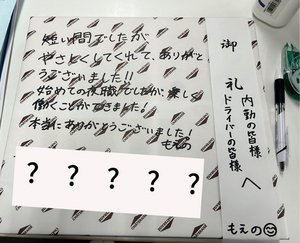 短い間でしたが
やさしくしてくれて、ありがと
うございました!!
始めての夜職でしたが、楽しく
働くことができました!
本当にありがとうございました!
もえの
? ? ? ? ?
御
礼
内勤の皆様
ドライバーの皆様
へ
もえの